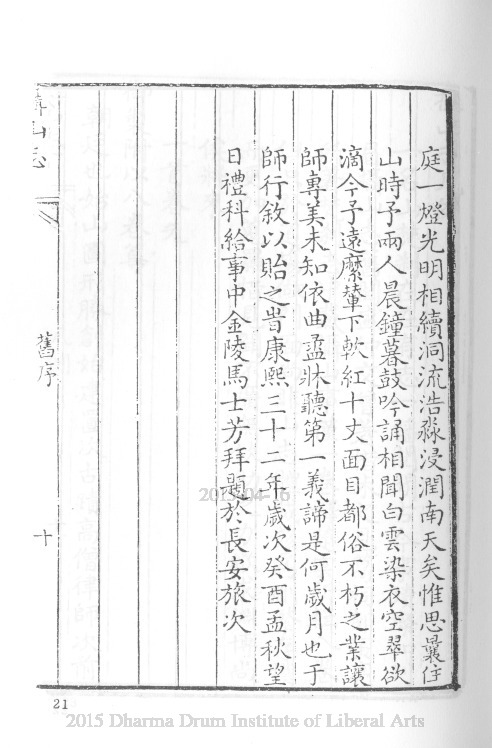 庭一燈光明相續洞流浩淼浸潤南天矣惟思曩住
山時予兩人晨鐘暮鼓吟誦相聞白雲染衣空翠欲
滴今予遠縻輦下軟紅十丈面目都俗不朽之業讓
師專美未知依曲盝牀聽第一義諦是何歲月也于
師行敘以貽之旹康熙三十二年歲次癸酉孟秋望
日禮科給事中金陵馬士芳拜題於長安旅次
山志
舊序
十
21
2015 Dharma Drum Institute of Liberal Arts